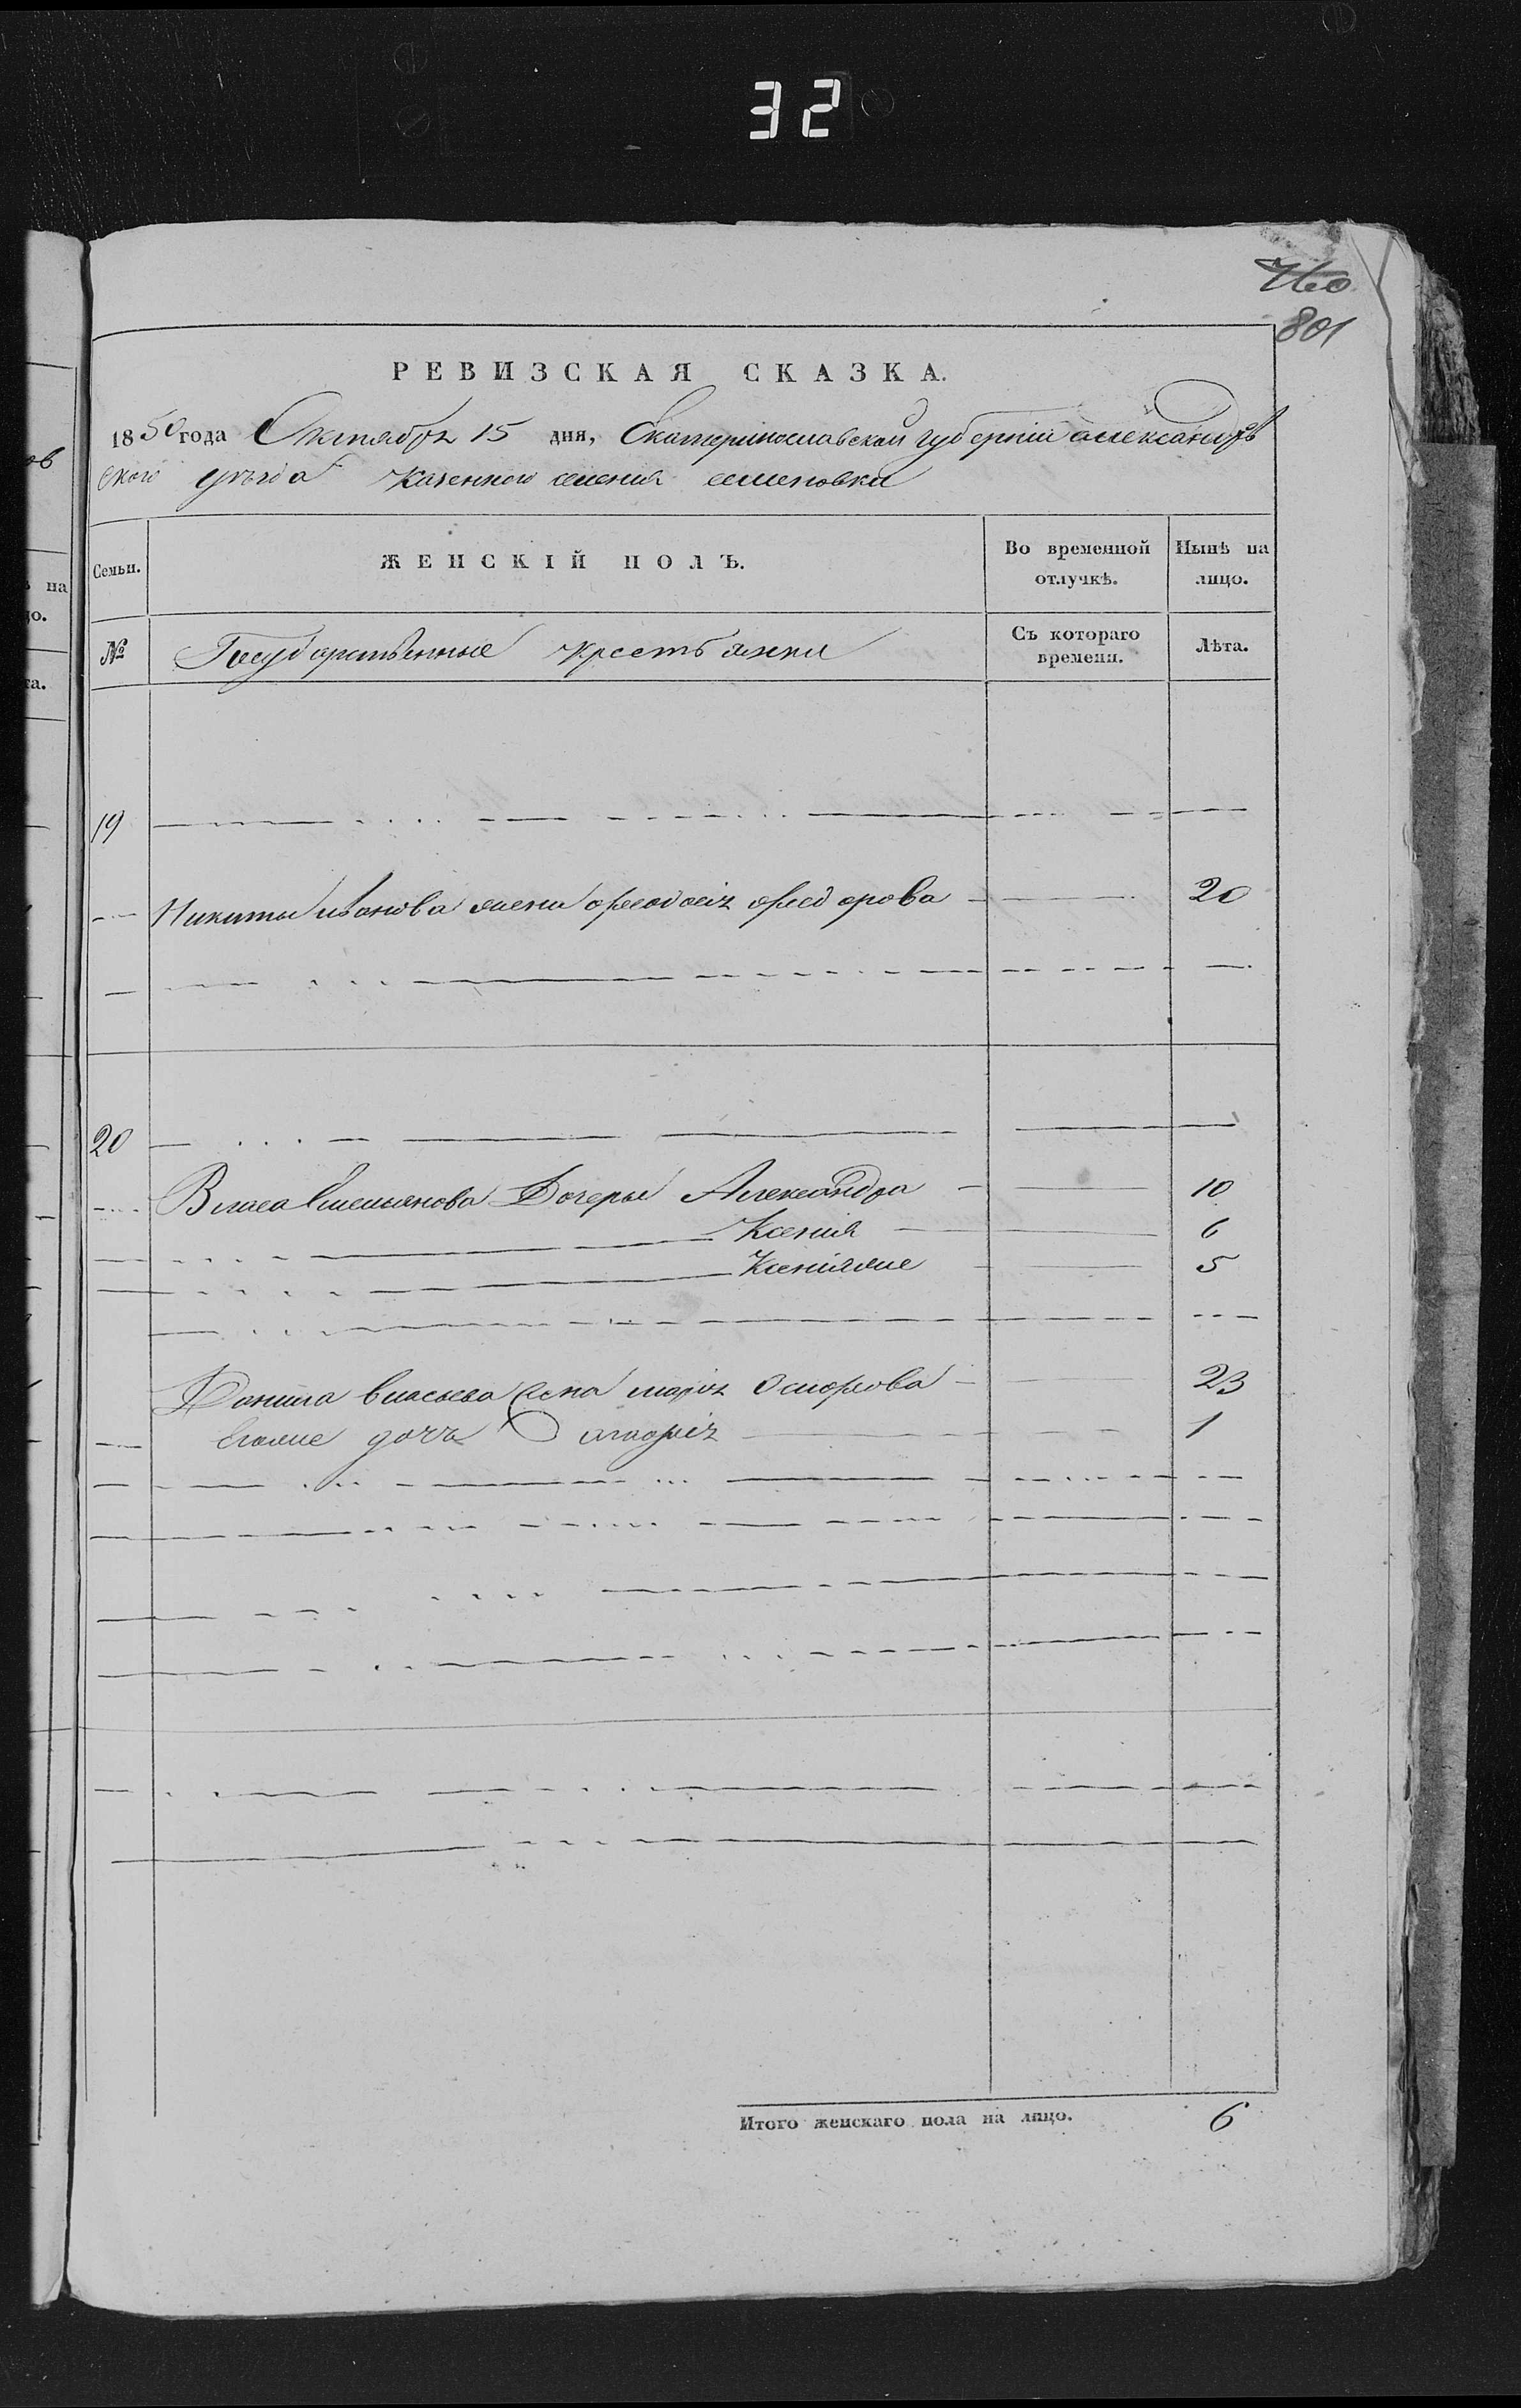 32
760
801
РЕВИЗСКАЯ СКАЗКА.
1850 года Октября 15 дня, Екатеринославской губернии александров
ского уезда казенного селения семеновки
Семьи. ЖЕНСКІЙ ПОЛЪ. Во временной отлучкѣ. Нынѣ на лицо.
№ Государственные крестьянки Съ котораго времени. Лѣта.
19
Никиты иванова жена феодосія федорова 20
20
Власа Емельянова Дочеры Александра 10
Ксенія 6
Ксеніяже 5
Данила власьева жена марія Осифова 23
Егоже дочь агафія 1
Итого женскаго пола на лицо. 6